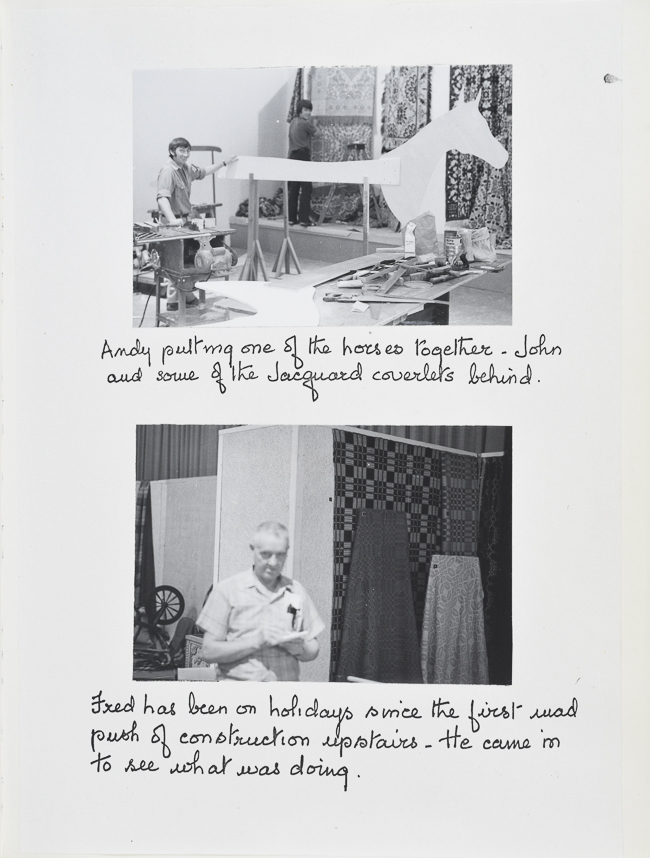 Andy putting one of the horses together - John
and some of the Jacquard coverlets behind.
Fred has been on holidays since the first mad
push of construction upstairs - He came in
to see what was doing.